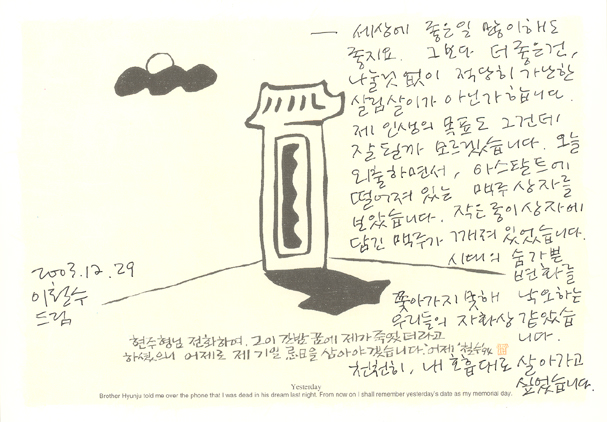 — 세상에 좋은일 많이해도
좋지요. 그보다 더 좋은건,
나눌것 없이 적당히 가난한
살림살이가 아닌가합니다.
제 인생의 목표도 그건데
잘 될까 모르겠습니다. 오늘
외출하면서, 아스팔트에
떨어져 있는 맥주상자를
보았습니다. 작은종이상자에
담긴 맥주가 깨져 있었습니다.
시대의 숨가쁜
변화를
쫓아가지 못해 낙오하는
우리들의 자화상 같았습
니다.
천천히, 내 호흡대로 살아가라고
싶었습니다.
2003.12.29
이철수
드림
현수형님 전화하여, 그이 간밤 꿈에 제가 죽었더라고
하셨으니 어제로 제 기일 忌日을 삼아야겠습니다. '어제' 철수
Yesterday
Brother Hyunju told me over the phone that I was dead in his dream last night. From now on I shall remember yesterday's date as my memorial day.